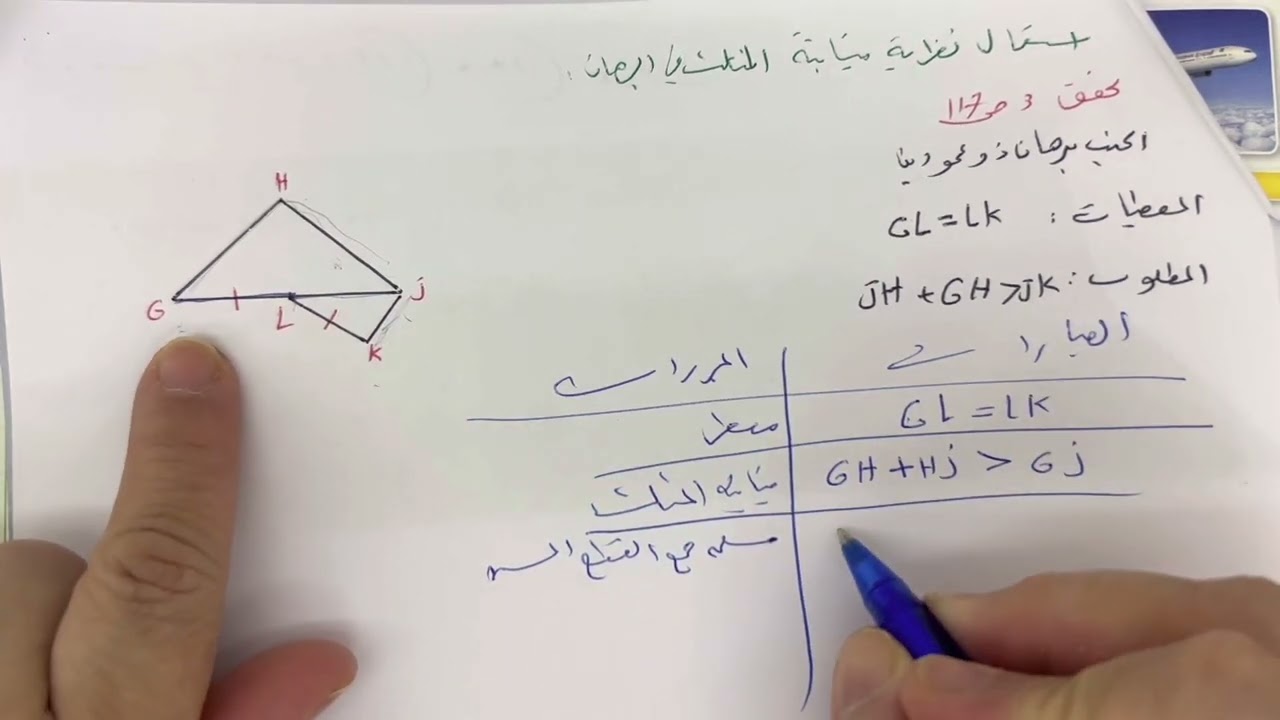 استعمال نظرية متباينة المثلث في البرهان:
تحقق 3 ص 117
اكتب برهانا ذو عمودين
المعطيات: GL = LK
المطلوب: JH + GH > JK
العبارات
المبررات
GL = LK
معطى
GH + HJ > GJ
متباينة المثلث
مسلمة جمع القطع المس
H
G
L
J
K